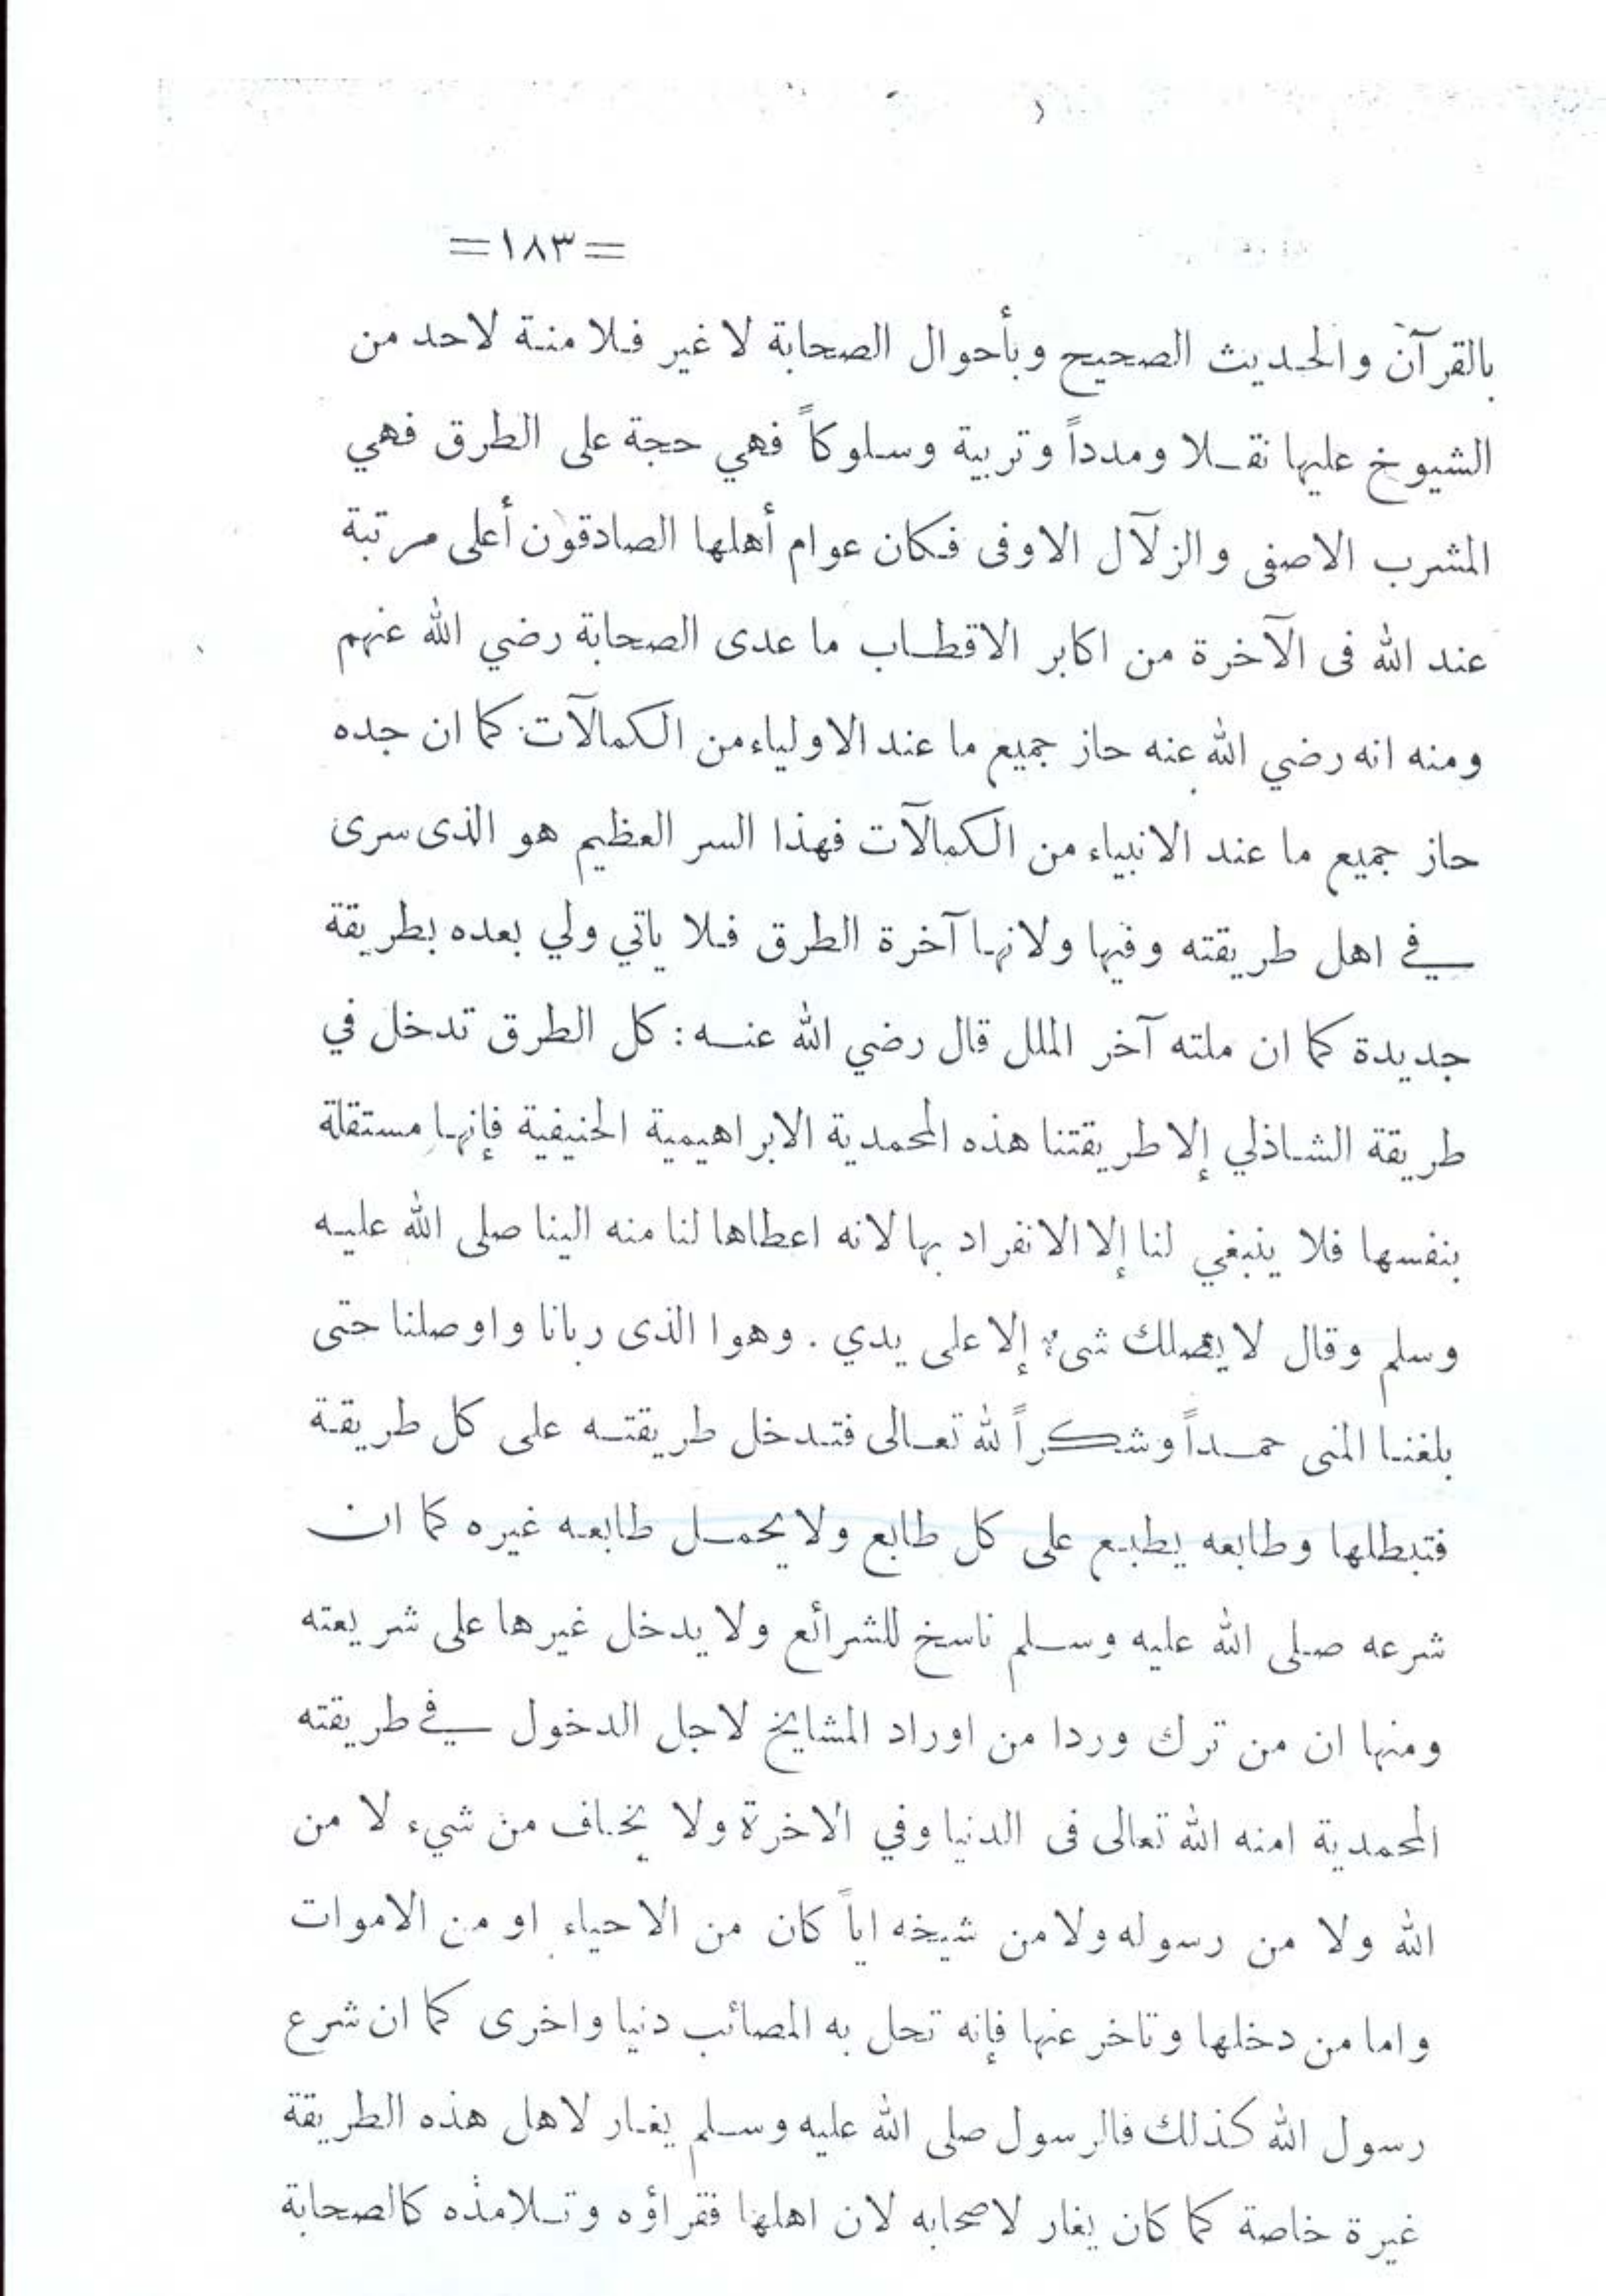 =١٨٣=
بالقرآن والحديث الصحيح وبأحوال الصحابة لا غير فلا منة لاحد من
الشيوخ عليها نقلا ومدداً وتربية وسلوكاً فهي حجة على الطرق فهي
المشرب الاصفى والزلآل الاوفى فكان عوام أهلها الصادقون أعلى مرتبة
عند الله فى الآخرة من اكابر الاقطاب ما عدى الصحابة رضي الله عنهم
ومنه انه رضي الله عنه حاز جميع ما عند الاولياء من الكمالآت كما ان جده
حاز جميع ما عند الانبياء من الكمالآت فهذا السر العظيم هو الذى سرى
في اهل طريقته وفيها ولانها آخرة الطرق فلا ياتي ولي بعده بطريقة
جديدة كما ان ملته آخر الملل قال رضي الله عنه : كل الطرق تدخل في
طريقة الشاذلي إلا طريقتنا هذه المحمدية الابراهيمية الحنيفية فإنها مستقلة
بنفسها فلا ينبغي لنا إلا الانفراد بها لانه اعطاها لنا منه الينا صلى الله عليه
وسلم وقال لا يصلك شىء إلا على يدي . وهوا الذى ربانا واوصلنا حتى
بلغنا المنى حمداً وشكراً لله تعالى فتدخل طريقته على كل طريقة
فتبطلها وطابعه يطبع على كل طابع ولا يحمل طابعه غيره كما ان
شرعه صلى الله عليه وسلم ناسخ للشرائع ولا يدخل غيرها على شريعته
ومنها ان من ترك وردا من اوراد المشايخ لاجل الدخول في طريقته
المحمدية امنه الله تعالى فى الدنيا وفي الاخرة ولا يخاف من شيء لا من
الله ولا من رسوله ولا من شيخه اياً كان من الاحياء او من الاموات
واما من دخلها وتاخر عنها فإنه تحل به المصائب دنيا واخرى كما ان شرع
رسول الله كذلك فالرسول صلى الله عليه وسلم يغار لاهل هذه الطريقة
غيرة خاصة كما كان يغار لاصحابه لان اهلها فقراؤه وتلامذه كالصحابة